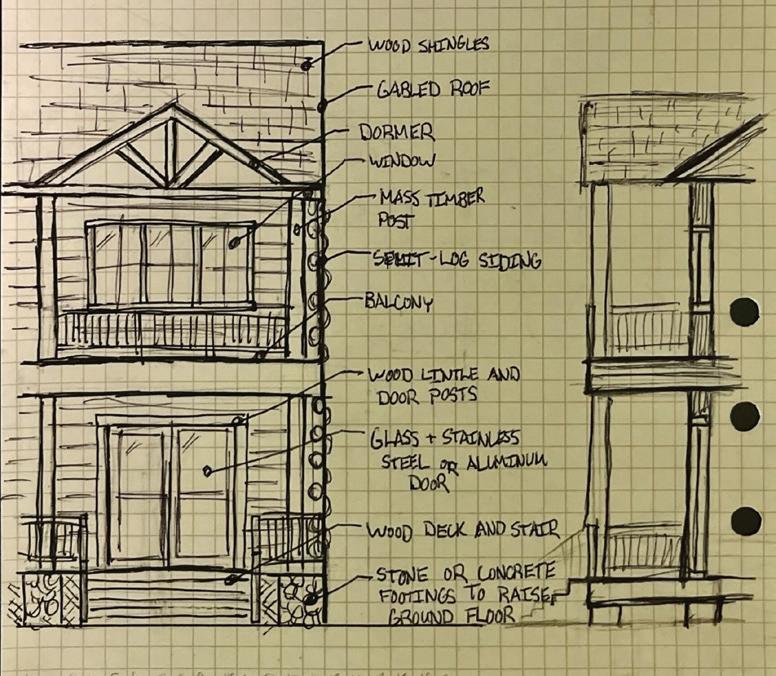 WOOD SHINGLES
GABLED ROOF
DORMER
WINDOW
MASS TIMBER
POST
SPLIT-LOG SIDING
BALCONY
WOOD LINTLE AND
DOOR POSTS
GLASS + STAINLESS
STEEL OR ALUMINUM
DOOR
WOOD DECK AND STAIR
STONE OR CONCRETE
FOOTINGS TO RAISE
GROUND FLOOR